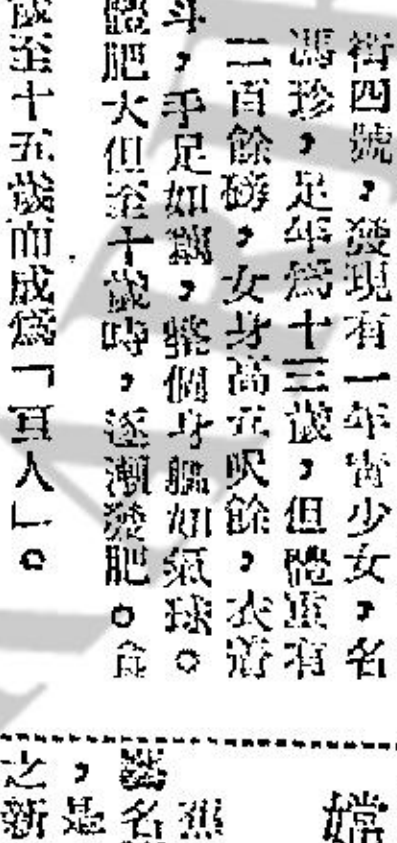 街四號，發現有一年靑少女，名
馮珍，足年爲十三歲，但體重有
二百餘磅，女身高五呎餘，衣著
斗，手足如鼓，整個身軀如氣球。
體肥大但至十歲時，逐漸發肥。食
歲至十五歲而成爲「巨人」。
嫦
名
，是
之新